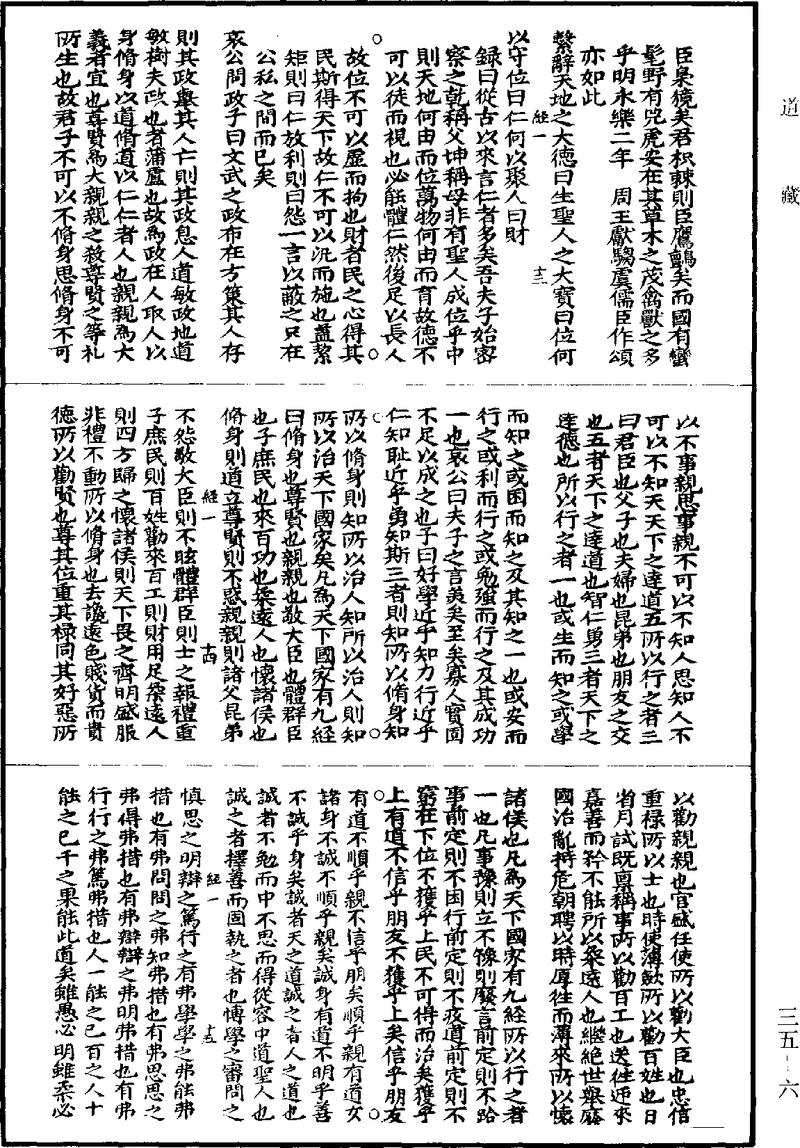 道藏
臣梟獍矣君枳棘則臣鷹鸇矣而國有蠻
髦野有兕虎安在其草木之茂禽獸之多
乎明永樂二年　周王獻騶虞儒臣作頌
亦如此
經一　十三
繫辭天地之大德曰生聖人之大寶曰位何
以守位曰仁何以聚人曰財
錄曰從古以來言仁者多矣吾夫子始密
察之乾稱父坤稱母非有聖人成位乎中
則天地何由而位萬物何由而育故德不
可以徒而視也必能體仁然後足以長人
故位不可以虛而拘也財者民之心得其
民斯得天下故仁不可以汎而施也蓋絜
矩則曰仁放利則曰怨一言以蔽之只在
公私之間而已矣
哀公問政子曰文武之政布在方策其人存
則其政舉其人亡則其政息人道敏政地道
敏樹夫政也者蒲盧也故為政在人取人以
身脩身以道脩道以仁仁者人也親親為大
義者宜也尊賢為大親親之殺尊賢之等礼
所生也故君子不可以不脩身思脩身不可
以不事親思事親不可以不知人思知人不
可以不知天天下之達道五所以行之者三
曰君臣也父子也夫婦也昆弟也朋友之交
也五者天下之達道也智仁勇三者天下之
達德也所以行之者一也或生而知之或學
而知之或困而知之及其知之一也或安而
行之或利而行之或勉強而行之及其成功
一也哀公曰夫子之言美矣至矣寡人實固
不足以成之也子曰好學近乎知力行近乎
仁知耻近乎勇知斯三者則知所以脩身知
所以脩身則知所以治人知所以治人則知
所以治天下國家矣凡為天下國家有九經
曰脩身也尊賢也親親也敬大臣也體群臣
也子庶民也來百功也柔遠人也懷諸侯也
脩身則道立尊賢則不惑親親則諸父昆弟
經一　十四
不怨敬大臣則不眩體群臣則士之報禮重
子庶民則百姓勸來百工則財用足柔遠人
則四方歸之懷諸侯則天下畏之齊明盛服
非禮不動所以脩身也去讒遠色賤貨而貴
德所以勸賢也尊其位重其祿同其好惡所
以勸親親也官盛任使所以勸大臣也忠信
重祿所以士也時使薄歛所以勸百姓也日
省月試既稟稱事所以勸百工也送往迎來
嘉善而矜不能所以柔遠人也繼絕世舉廢
國治亂持危朝聘以時厚往而薄來所以懷
諸侯也凡為天下國家有九經所以行之者
一也凡事豫則立不豫則廢言前定則不跲
事前定則不困行前定則不疚道前定則不
窮在下位不獲乎上民不可得而治矣獲乎
上有道不信乎朋友不獲乎上矣信乎朋友
有道不順乎親不信乎朋矣順乎親有道友
諸身不誠不順乎親矣誠身有道不明乎善
不誠乎身矣誠者天之道誠之者人之道也
誠者不勉而中不思而得從容中道聖人也
誠之者擇善而固執之者也博學之審問之
經一　十五
慎思之明辯之篤行之有弗學學之弗能弗
措也有弗問問之弗知弗措也有弗思思之
弗得弗措也有弗辯辯之弗明弗措也有弗
行行之弗篤弗措也人一能之己百之人十
能之己千之果能此道矣雖愚必明雖柔必
三五-六